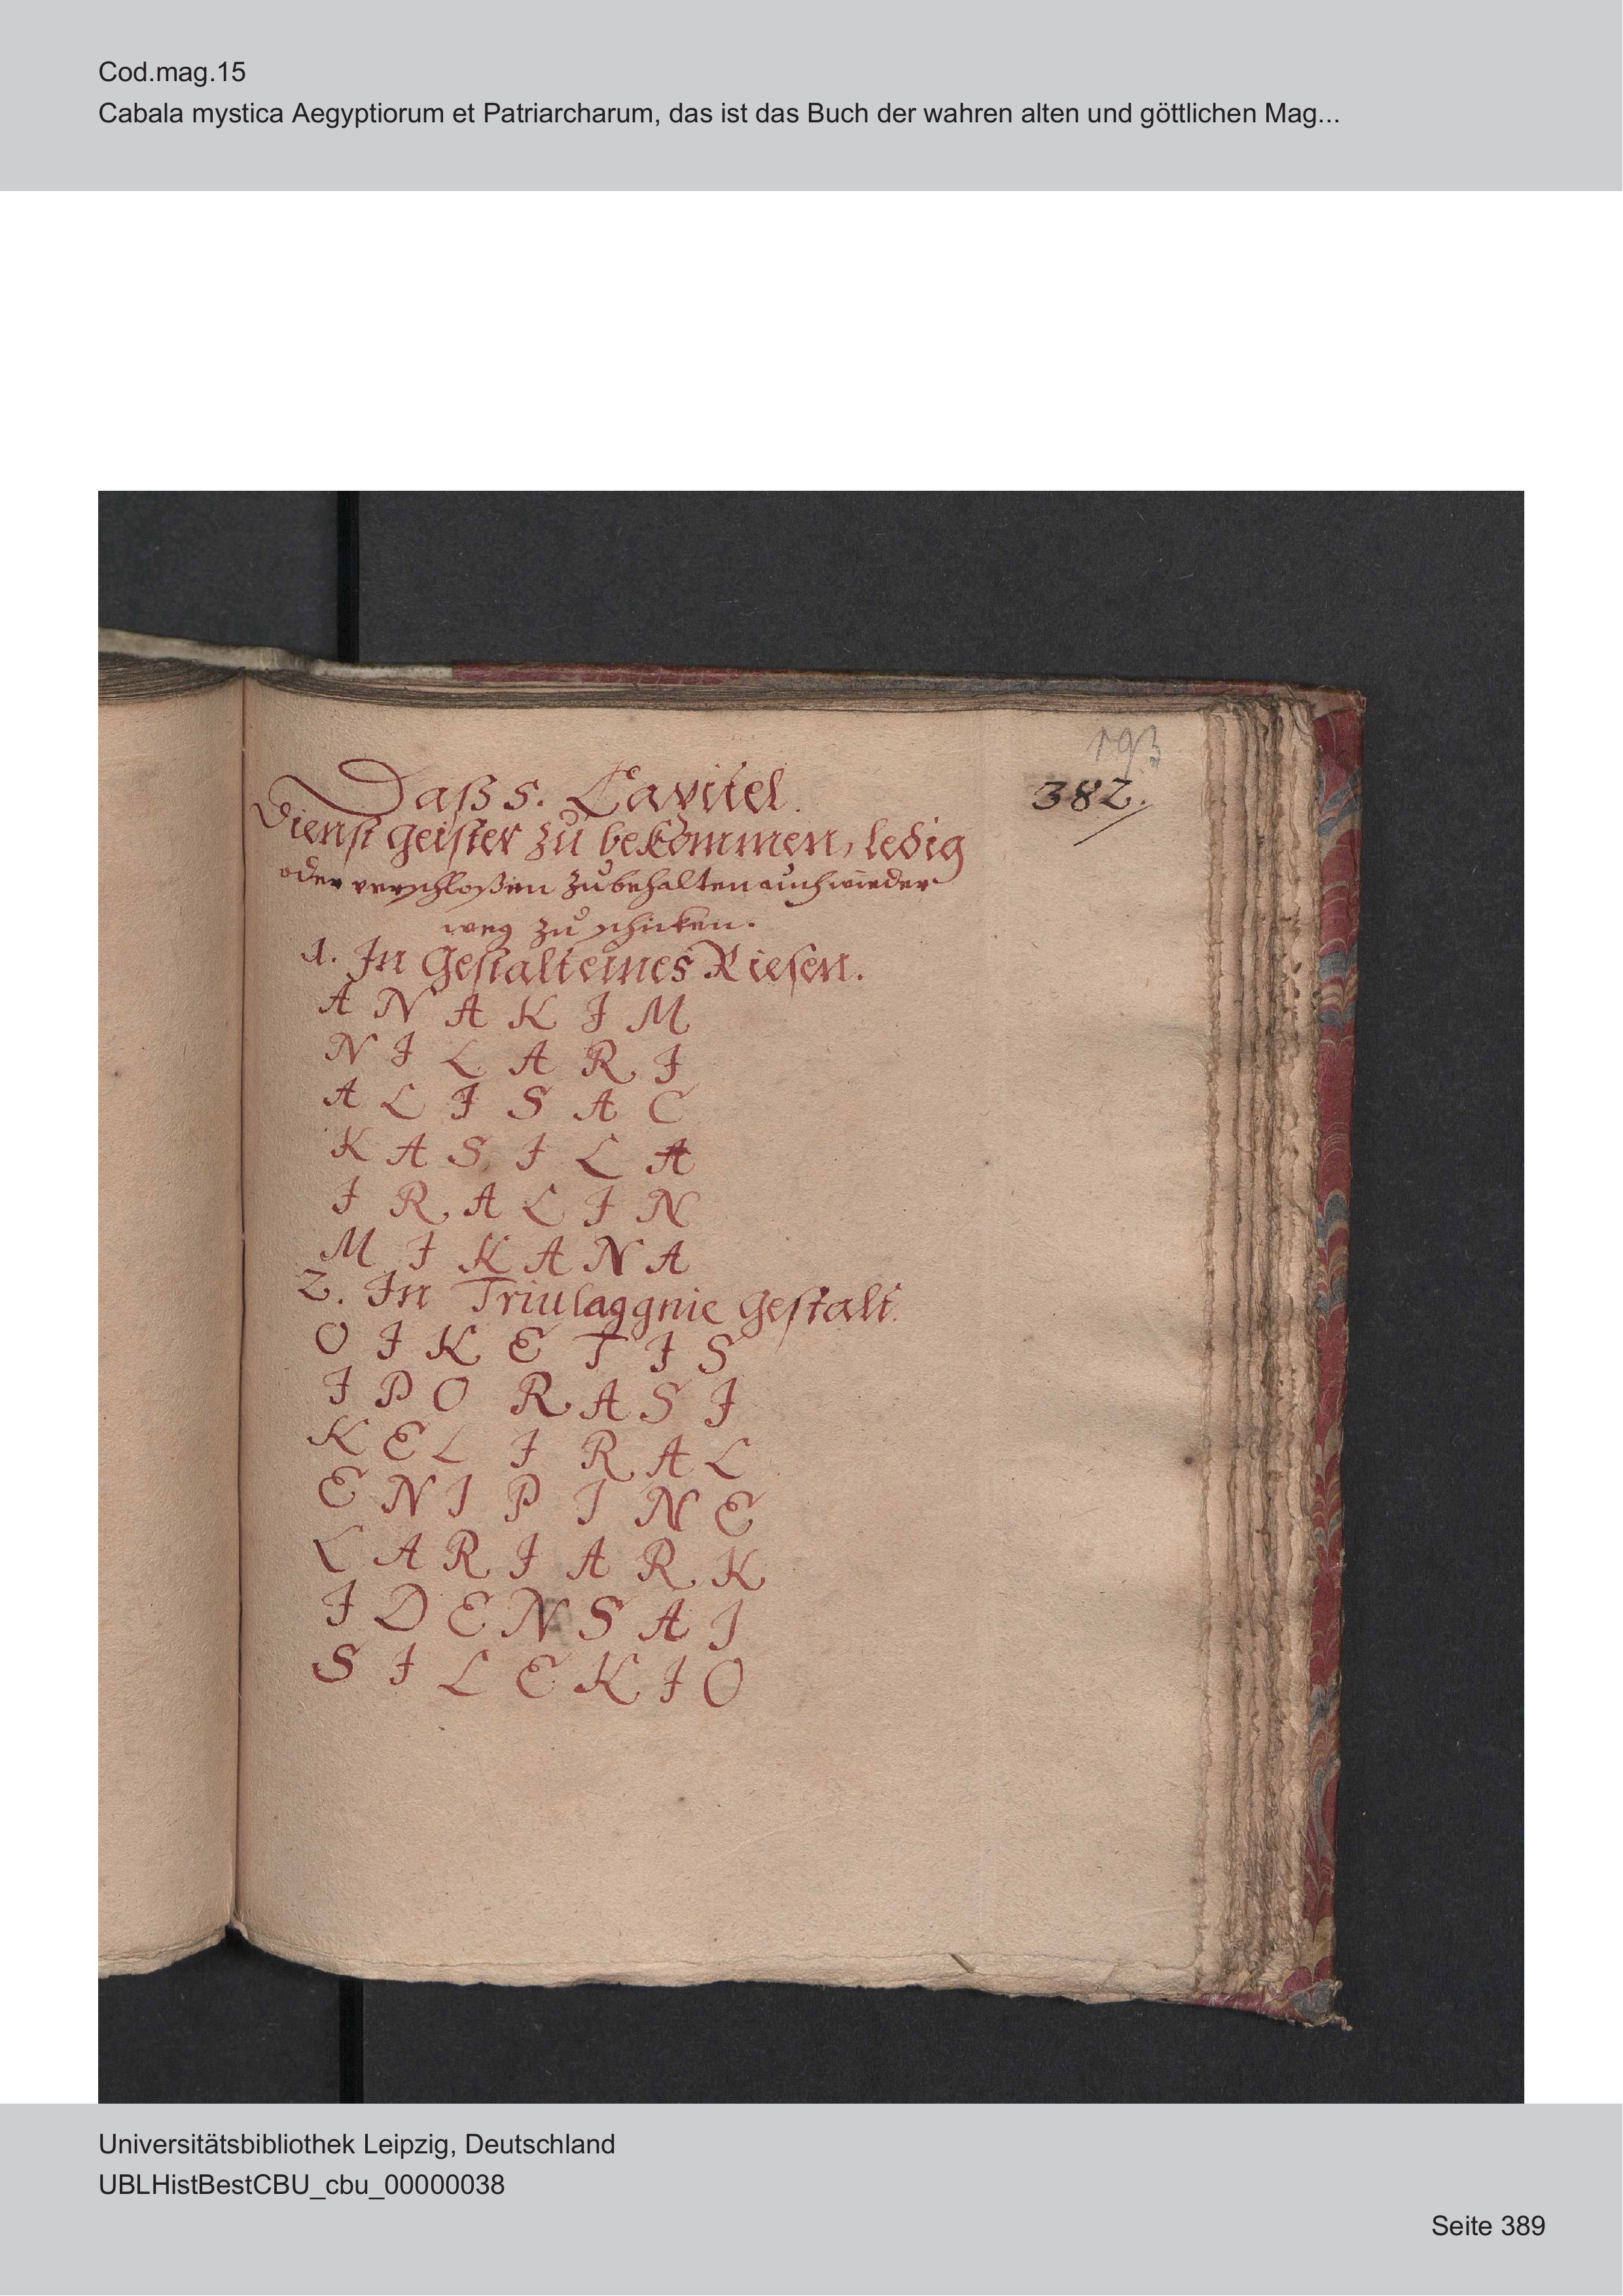 Cod.mag.15
Cabala mystica Aegyptiorum et Patriarcharum, das ist das Buch der wahren alten und göttlichen Mag...
193
382.
Daß 5. Capitel.
Dienst geister zu bekommen, ledig
oder verschloßen zubehalten auch wieder
weg zu schicken.
1. In Gestalt eines Riesen.
A N A K I M
N I L A R I
A L I S A C
K A S I L A
I R A L I N
M I K A N A
2. In Gestalt
O I K E T I S
I P O R A S I
K E L I R A L
E N I P I N E
L A R I A R K
I D E N S A I
S I L E K I O
Universitätsbibliothek Leipzig, Deutschland
UBLHistBestCBU_cbu_00000038
Seite 389